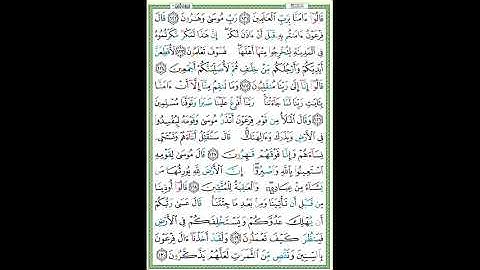 قَالُوٓا۟ ءَامَنَّا بِرَبِّ ٱلْعَـٰلَمِينَ ١٢١ رَبِّ مُوسَىٰ وَهَـٰرُونَ ١٢٢ قَالَ
فِرْعَوْنُ ءَامَنتُم بِهِۦ قَبْلَ أَنْ ءَاذَنَ لَكُمْ إِنَّ هَـٰذَا لَمَكْرٌ مَّكَرْتُمُوهُ
فِى ٱلْمَدِينَةِ لِتُخْرِجُوا۟ مِنْهَآ أَهْلَهَا فَسَوْفَ تَعْلَمُونَ ١٢٣ لَأُقَطِّعَنَّ
أَيْدِيَكُمْ وَأَرْجُلَكُم مِّنْ خِلَـٰفٍ ثُمَّ لَأُصَلِّبَنَّكُمْ أَجْمَعِينَ ١٢٤
قَالُوٓا۟ إِنَّآ إِلَىٰ رَبِّنَا مُنقَلِبُونَ ١٢٥ وَمَا تَنقِمُ مِنَّآ إِلَّآ أَنْ ءَامَنَّا
بِـَٔايَـٰتِ رَبِّنَا لَمَّا جَآءَتْنَا رَبَّنَآ أَفْرِغْ عَلَيْنَا صَبْرًا وَتَوَفَّنَا مُسْلِمِينَ
١٢٦ وَقَالَ ٱلْمَلَأُ مِن قَوْمِ فِرْعَوْنَ أَتَذَرُ مُوسَىٰ وَقَوْمَهُۥ لِيُفْسِدُوا۟
فِى ٱلْأَرْضِ وَيَذَرَكَ وَءَالِهَتَكَ قَالَ سَنُقَتِّلُ أَبْنَآءَهُمْ وَنَسْتَحْىِۦ
نِسَآءَهُمْ وَإِنَّا فَوْقَهُمْ قَـٰهِرُونَ ١٢٧ قَالَ مُوسَىٰ لِقَوْمِهِ
ٱسْتَعِينُوا۟ بِٱللَّهِ وَٱصْبِرُوٓا۟ إِنَّ ٱلْأَرْضَ لِلَّهِ يُورِثُهَا مَن
يَشَآءُ مِنْ عِبَادِهِۦ وَٱلْعَـٰقِبَةُ لِلْمُتَّقِينَ ١٢٨ قَالُوٓا۟ أُوذِينَا
مِن قَبْلِ أَن تَأْتِيَنَا وَمِنۢ بَعْدِ مَا جِئْتَنَا قَالَ عَسَىٰ رَبُّكُمْ
أَن يُهْلِكَ عَدُوَّكُمْ وَيَسْتَخْلِفَكُمْ فِى ٱلْأَرْضِ
فَيَنظُرَ كَيْفَ تَعْمَلُونَ ١٢٩ وَلَقَدْ أَخَذْنَآ ءَالَ فِرْعَوْنَ
بِٱلسِّنِينَ وَنَقْصٍ مِّنَ ٱلثَّمَرَٰتِ لَعَلَّهُمْ يَذَّكَّرُونَ ١٣٠